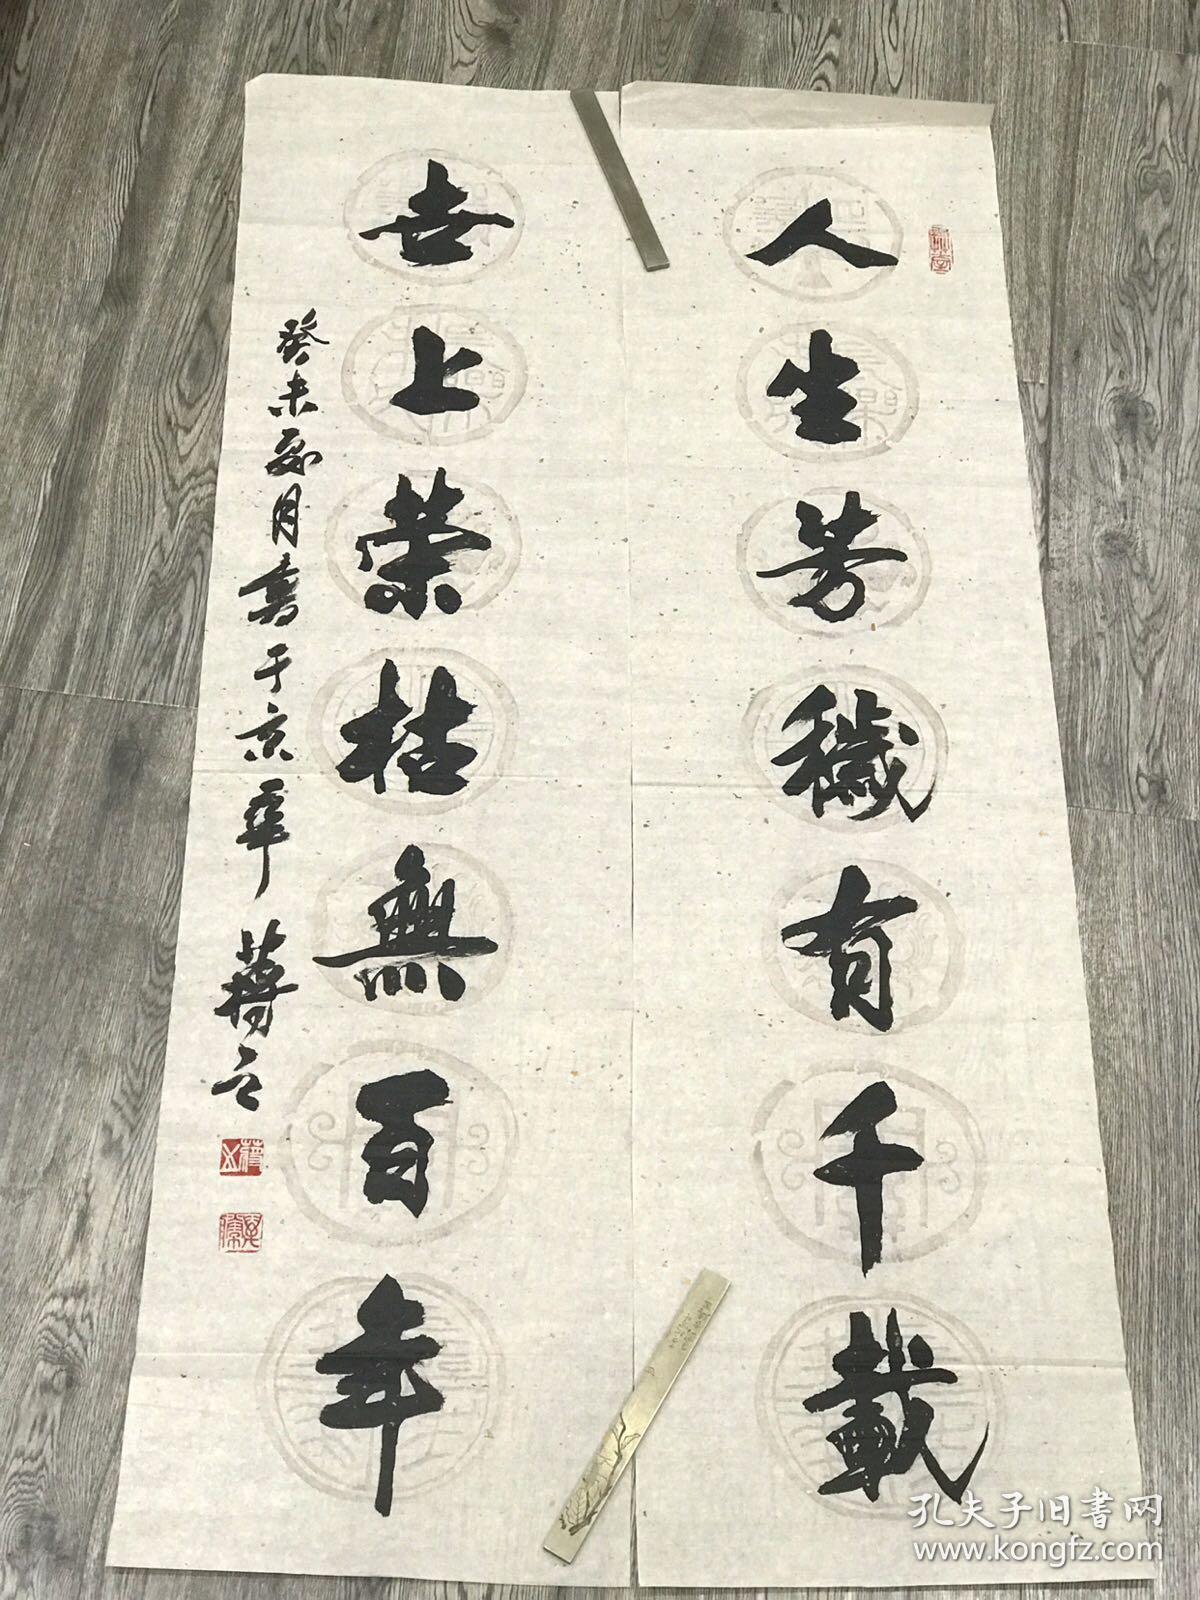 人生芳穢有千載
世上榮枯無百年
癸未夏月書于京華 蔣立
孔夫子旧书网
www.kongfz.com